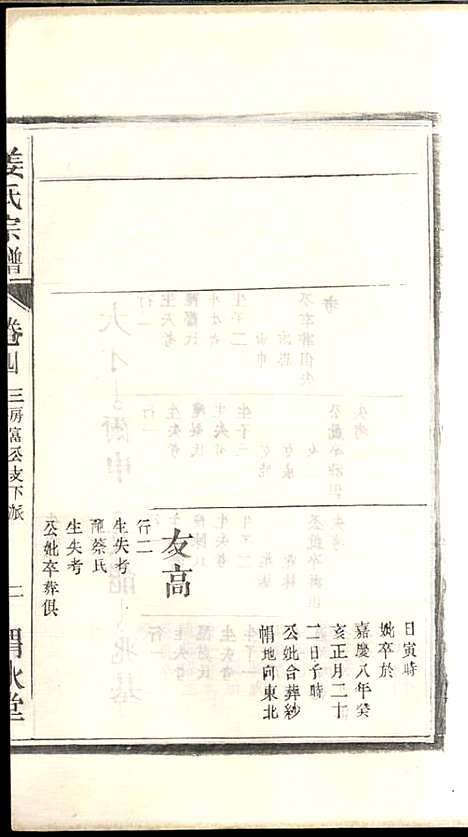 日寅時
妣卒於
嘉慶八年癸
亥正月二十
二日子時
公妣合葬紗
帽地向東北
友高
行二
生失考
配蔡氏
生失考
公妣卒葬俱
姜氏宗譜
卷四
三房富公支下派
渭水堂